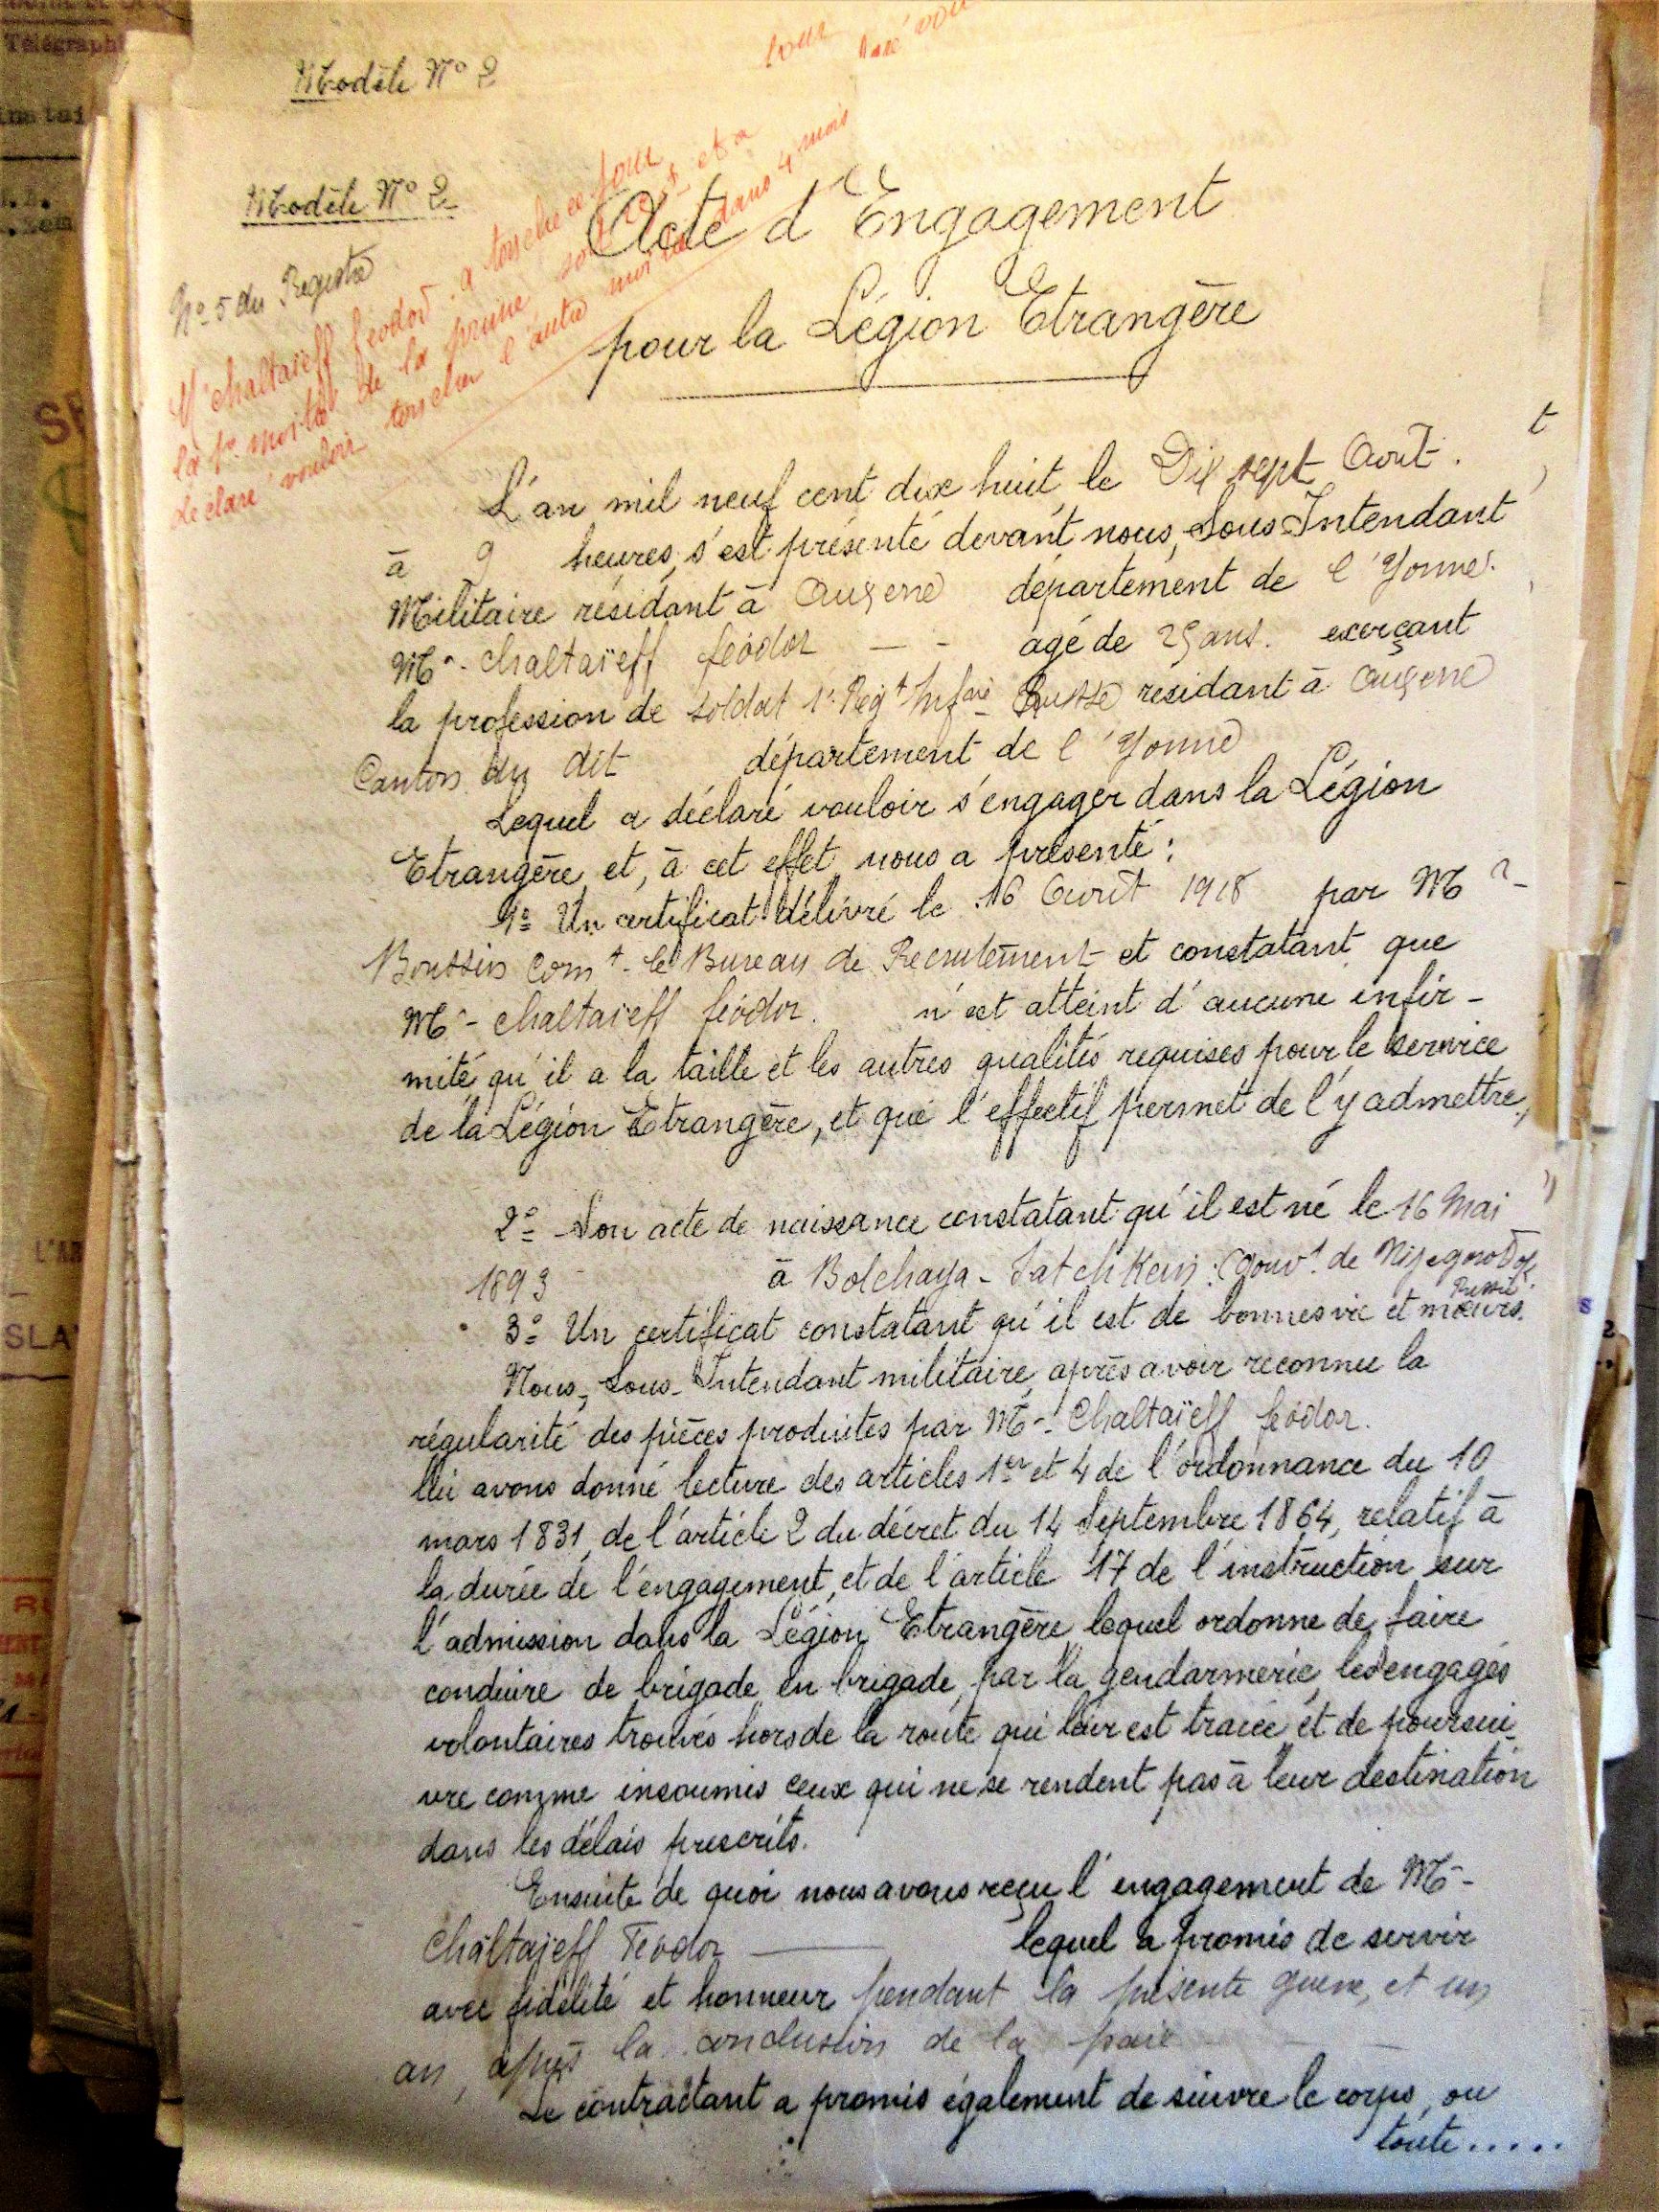 Modèle N° 2
Modèle N° 2
N° 5 du Registre
Acte d'Engagement
pour la Légion Etrangère
M chaltaïeff feodor a toucher ce jour
la 1re moitié de la prime soit et a
déclaré vouloir toucher l'autre moitié dans 4 mois
L'an mil neuf cent dix huit le Dix sept Août.
à 9 heures, s'est présenté devant nous, Sous-Intendant
Militaire résidant à Auxerre département de l'Yonne.
Mr. chaltaïeff féodor — - agé de 25 ans. exerçant
la profession de soldat 1r Regt Infrie Russe residant à Auxerre
Canton du dit département de l'Yonne
Lequel a déclaré vouloir s'engager dans la Légion
Etrangère et, à cet effet nous a présenté :
1º Un certificat délivré le 16 Août 1918 par Mr
Comt le Bureau de Recrutement et constatant que
Mr chaltaïeff féodor. n'est atteint d'aucune infir-
mité qu'il a la taille et les autres qualités requises pour le service
de la Légion Etrangère, et que l'effectif permet de l'y admettre,
2º Son acte de naissance constatant qu'il est né le 16 Mai
1893 à Bolchaya- (Gouvt. de Nijegorod
Russie
3º Un certificat constatant qu'il est de bonnes vie et mœurs.
Nous, Sous-Intendant militaire, après avoir reconnu la
régularité des pièces produites par Mr. Chaltaïeff feodor.
lui avons donné lecture des articles 1er et 4 de l'ordonnance du 10
mars 1831, de l'article 2 du décret du 14 Septembre 1864, relatif à
la durée de l'engagement, et de l'article 17 de l'instruction sur
l'admission dans la Légion Etrangère, lequel ordonne de faire
conduire de brigade en brigade, par la gendarmerie, les engagés
volontaires trouvés hors de la route qui leur est tracée et de poursui-
vre comme insoumis ceux qui ne se rendent pas à leur destination
dans les délais prescrits.
Ensuite de quoi nous avons reçu l'engagement de Mr
Chaltaïeff Féodor — lequel a promis de servir
avec fidélité et honneur pendant la présente guerre, et un
an, après la conclusion de la paix
Le contractant a promis également de suivre le corps, ou
toute.....